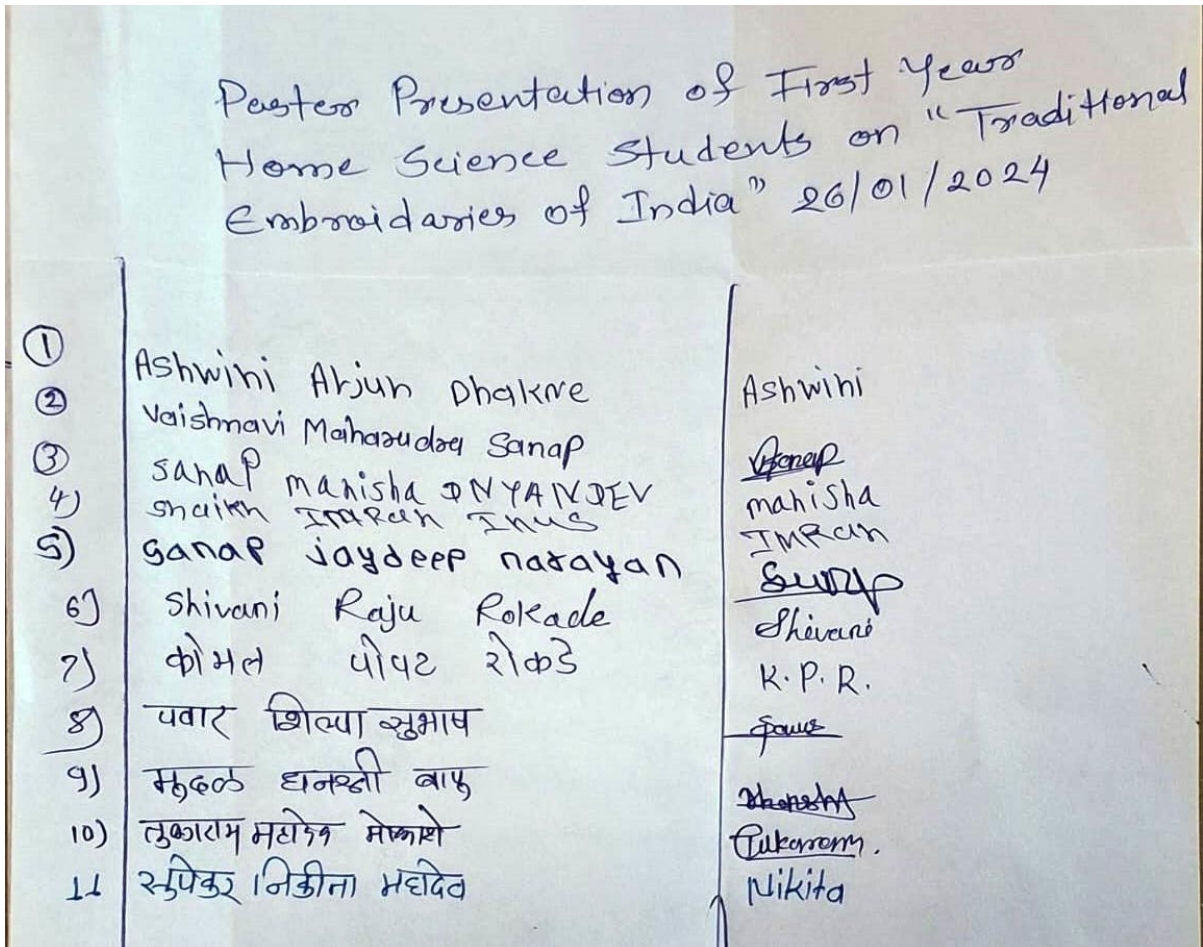 Poster Presentation of First Year
Home Science Students on "Traditional
Embroidaries of India" 26/01/2024
① Ashwini Arjun Dhakne Ashwini
② Vaishnavi Maharudra Sanap
③ Sanap Manisha DNYANDEV manisha
4) Shaikh IMRan Inus IMRan
5) Sanap jaydeep narayan
6) Shivani Raju Rokade Shivani
7) कोमल पोपट रोकडे K. P. R.
8) पवार शिल्पा सुभाष
9) धनश्री बापु
10) तुकाराम महादेव Tukaram.
11 निकीता महादेव Nikita